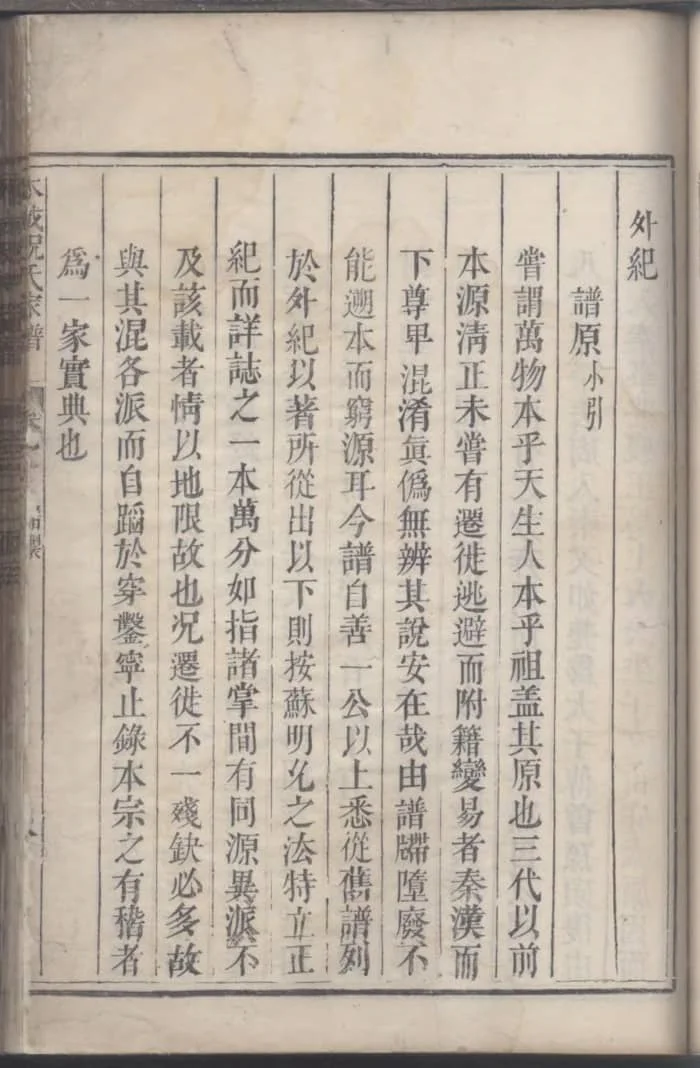 外紀
譜原小引
嘗謂萬物本乎天生人本乎祖盖其原也三代以前
本源清正未嘗有遷徙逃避而附籍變易者秦漢而
下尊卑混淆眞僞無辨其說安在哉由譜牒墮廢不
能遡本而窮源耳今譜自善一公以上悉從舊譜列
於外紀以著所從出以下則按蘇明允之法特立正
紀而詳誌之一本萬分如指諸掌間有同源異派不
及該載者情以地限故也况遷徙不一殘缺必多故
與其混各派而自蹈於穿鑿寧止錄本宗之有稽者
爲一家實典也
祝氏家譜